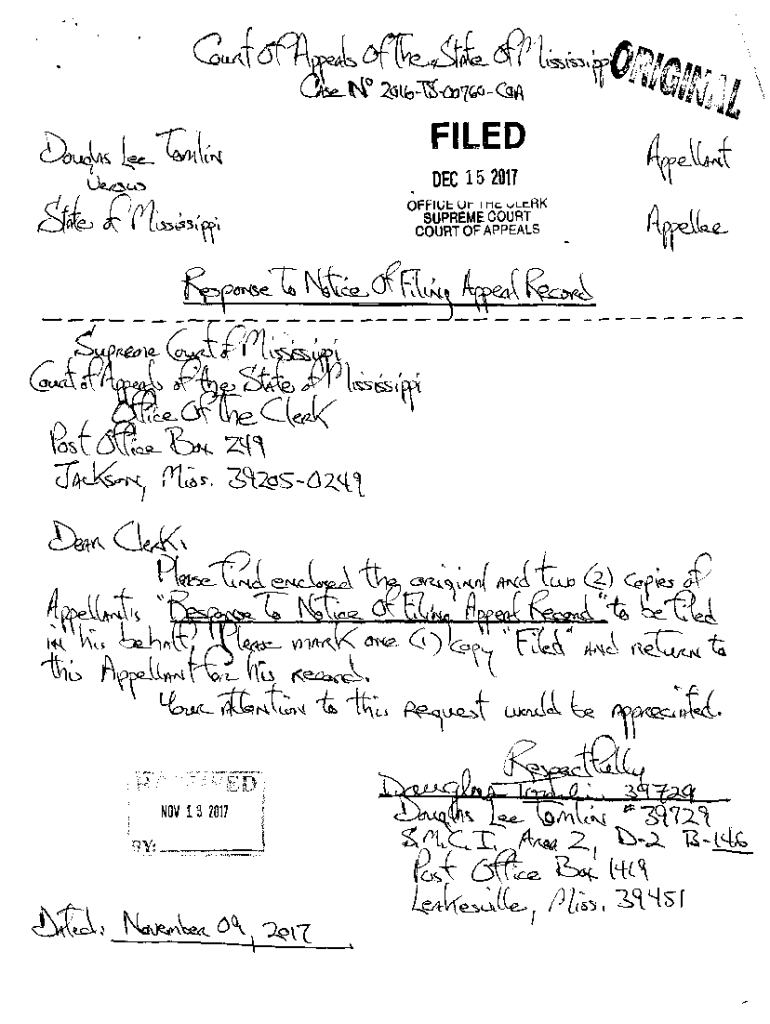 Court Of Appeals Of The State Of Mississippi
ORIGINAL
Case Nº 2016-TS-00760-COA
Douglas Lee Tomlin
Versus
State of Mississippi
FILED
DEC 15 2017
OFFICE OF THE CLERK
SUPREME COURT
COURT OF APPEALS
Appellant
Appellee
Response To Notice Of Filing Appeal Record
Supreme Court of Mississippi
Court of Appeals of the State of Mississippi
Office Of the Clerk
Post Office Box 249
Jackson, Miss. 39205-0249
Dear Clerk,
Please find enclosed the original and two (2) copies of
Appellant's "Response To Notice Of Filing Appeal Record" to be filed
in his behalf. Please mark one (1) copy "Filed" and return to
this Appellant for his record.
Your attention to this request would be appreciated.
Respectfully
Douglas Tomlin 39729
Douglas Lee Tomlin #39729
S.M.C.I. Area 2, D-2 B-146
Post Office Box 1419
Leakesville, Miss. 39451
RECEIVED
NOV 13 2017
BY:
Dated: November 09, 2017